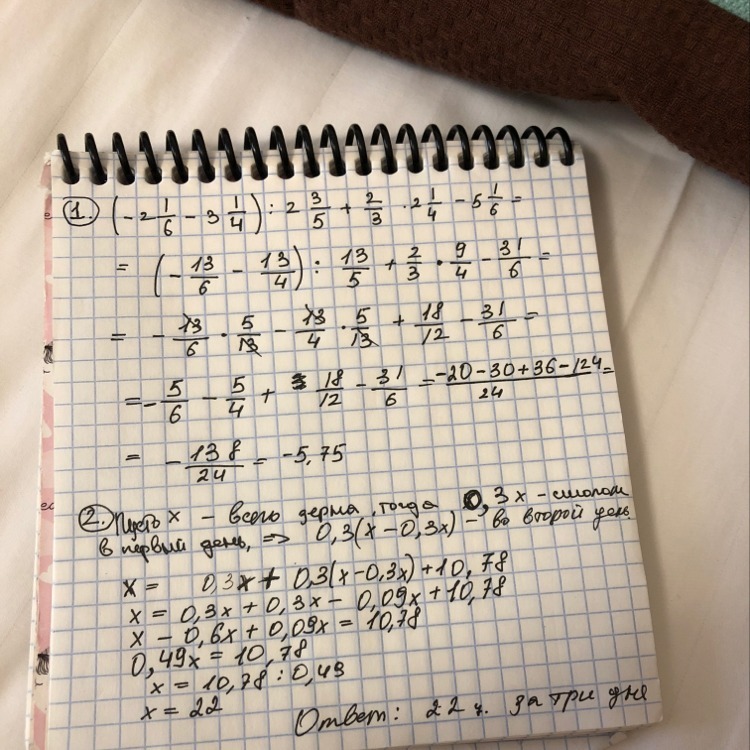 1. (-2 1/6 - 3 1/4) : 2 3/5 + 2/3 · 2 1/4 - 5 1/6 =
= (-13/6 - 13/4) : 13/5 + 2/3 · 9/4 - 31/6 =
= -13/6 · 5/13 - 13/4 · 5/13 + 18/12 - 31/6 =
= -5/6 - 5/4 + 18/12 - 31/6 = (-20-30+36-124)/24 =
= -138/24 = -5,75
2. Пусть x - всего зерна, тогда 0,3x - смололи
в первый день, => 0,3(x-0,3x) - во второй день.
x = 0,3x + 0,3(x-0,3x) + 10,78
x = 0,3x + 0,3x - 0,09x + 10,78
x - 0,6x + 0,09x = 10,78
0,49x = 10,78
x = 10,78 : 0,49
x = 22
Ответ: 22 ц. за три дня